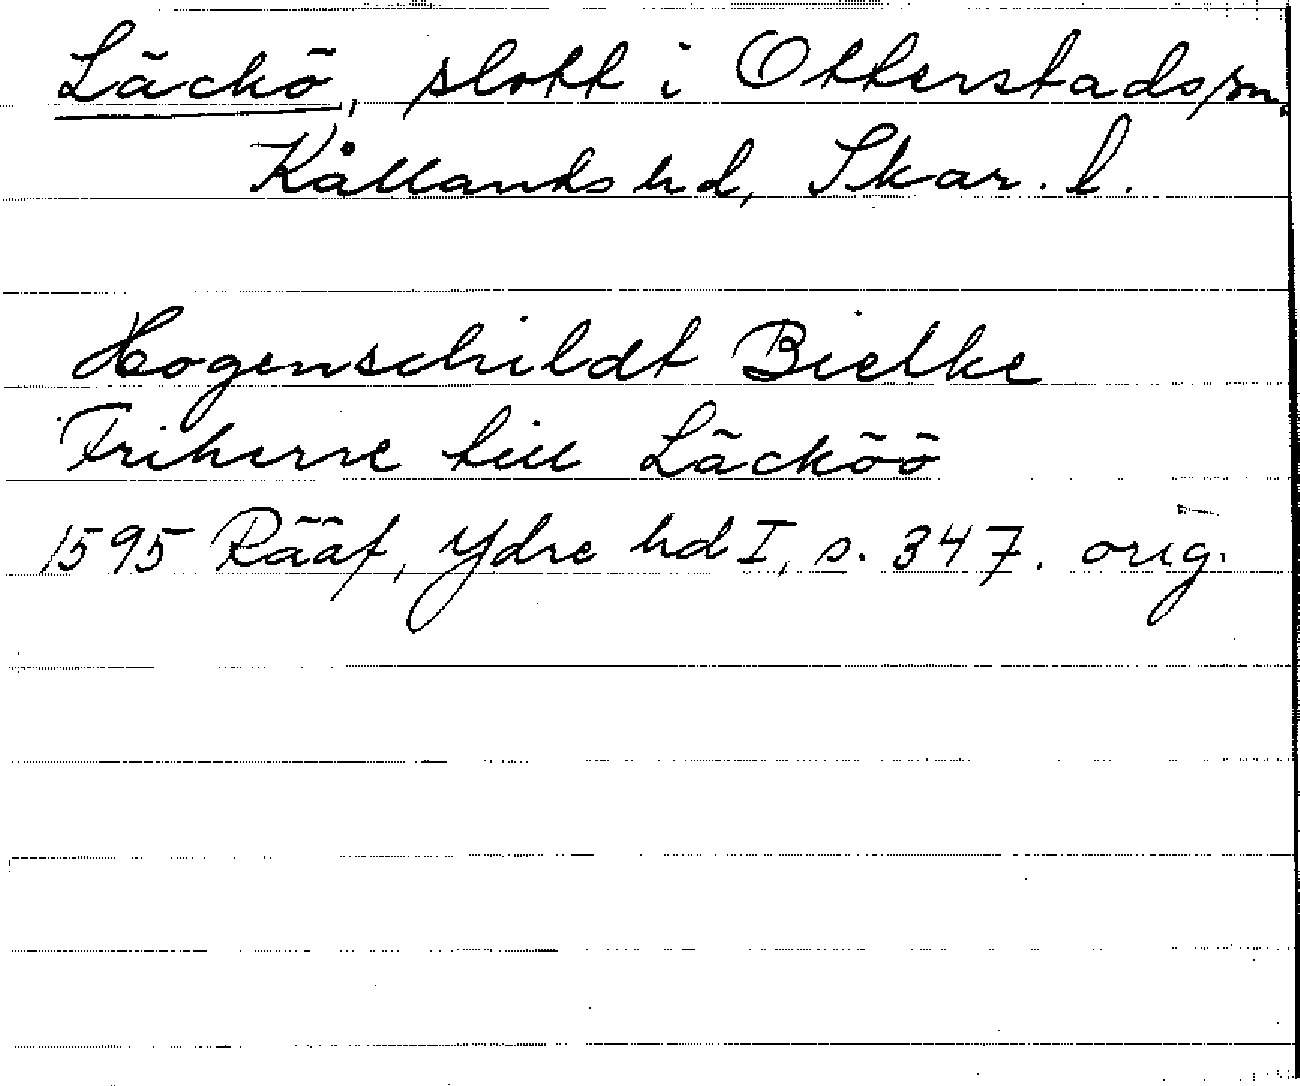 Läckö, slott i Otterstads sn,
Kållands hd, Skar. l.
Hogenschildt Bielke
Friherre till Läcköö
1595 Rääf, Ydre hd I, s. 347. orig.